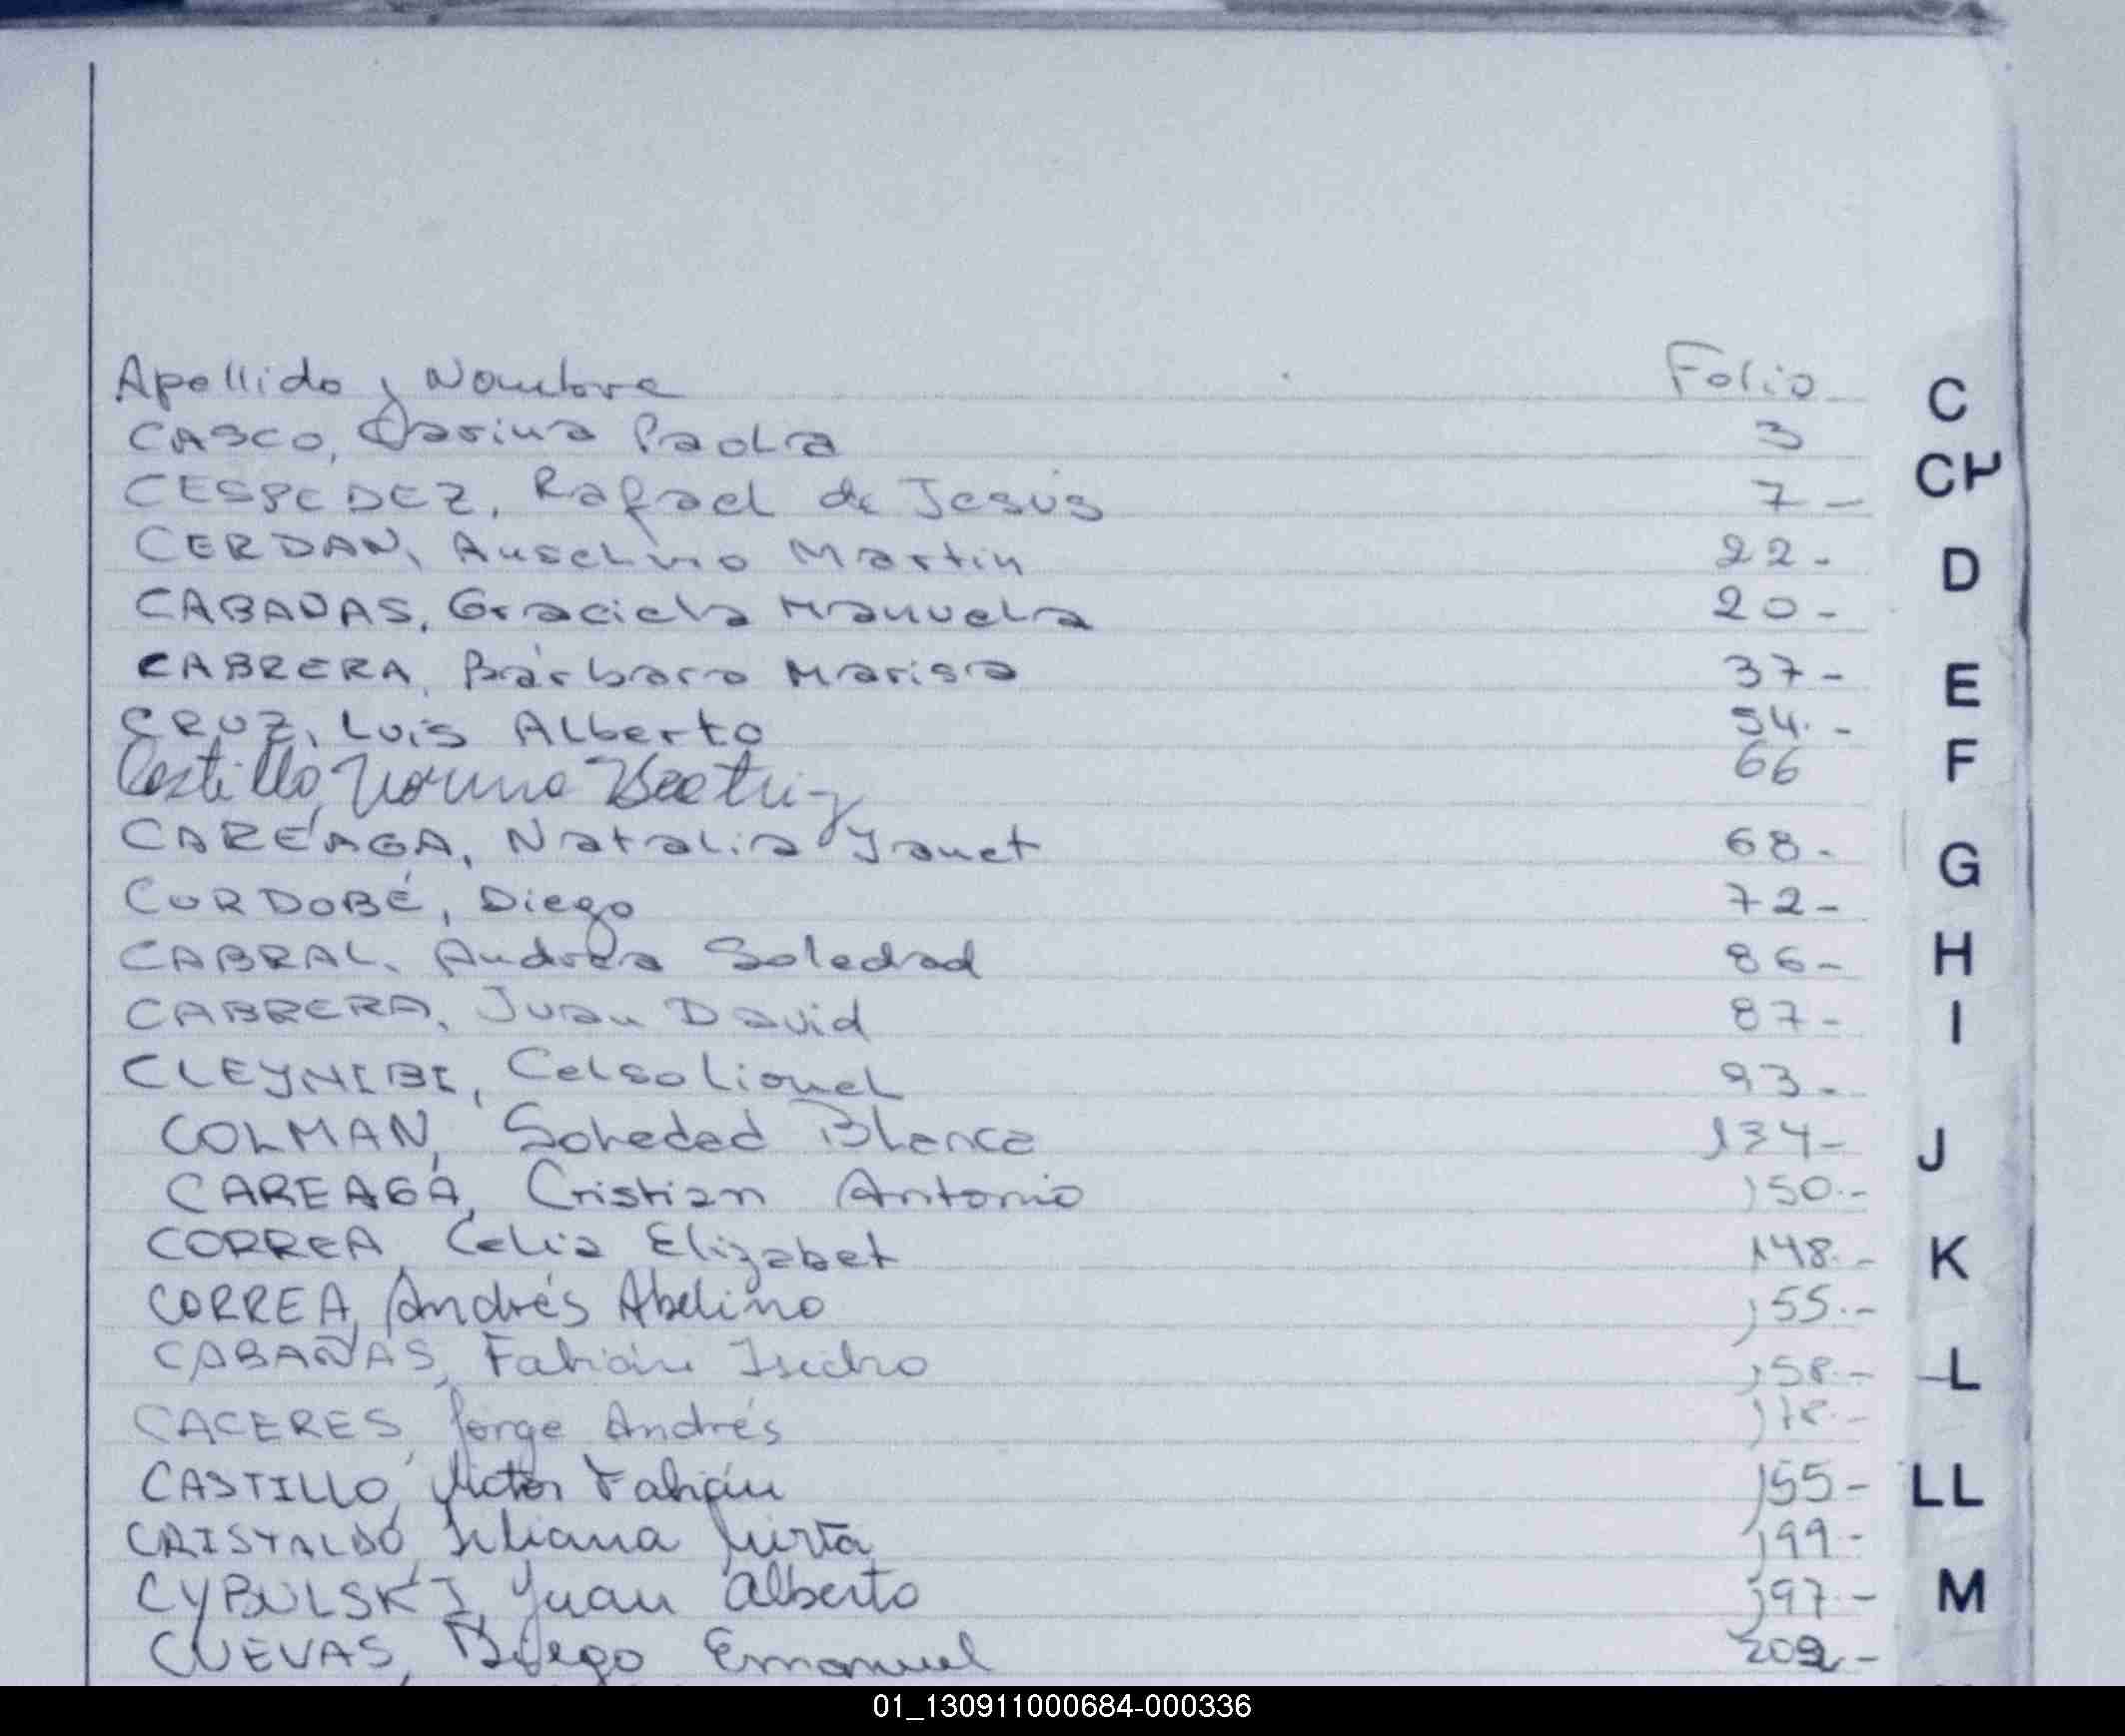 Apellido y Nombre Folio C
CASCO, Darina Paola 3
CESPEDEZ, Rafael de Jesús 7 - CH
CERDAN, Anselmo Martin 22 - D
CABANAS, Graciela Manuela 20 -
CABRERA, Bárbara Marisa 37 - E
CRUZ, Luis Alberto 54. -
Castillo, Norma Beatriz 66 F
CAREAGA, Natalia Janet 68 - G
CORDOBÉ, Diego 72 -
CABRAL, Andrea Soledad 86 - H
CABRERA, Juan David 87 - I
CLEYNIBI, Celso Lionel 93 -
COLMAN, Soledad Blanca 134 - J
CAREAGA, Cristian Antonio 150.-
CORREA, Celia Elizabet 148.- K
CORREA, Andrés Abelino 155.-
CABAÑAS, Fabián Isidro 158.- L
CACERES, Jorge Andrés
CASTILLO, Victor Fabián 155 - LL
CRISTALDO, Liliana Mirta 199 -
CYBULSKI, Juan Alberto 197.- M
CUEVAS, Diego Emanuel 202 -
01_130911000684-000336